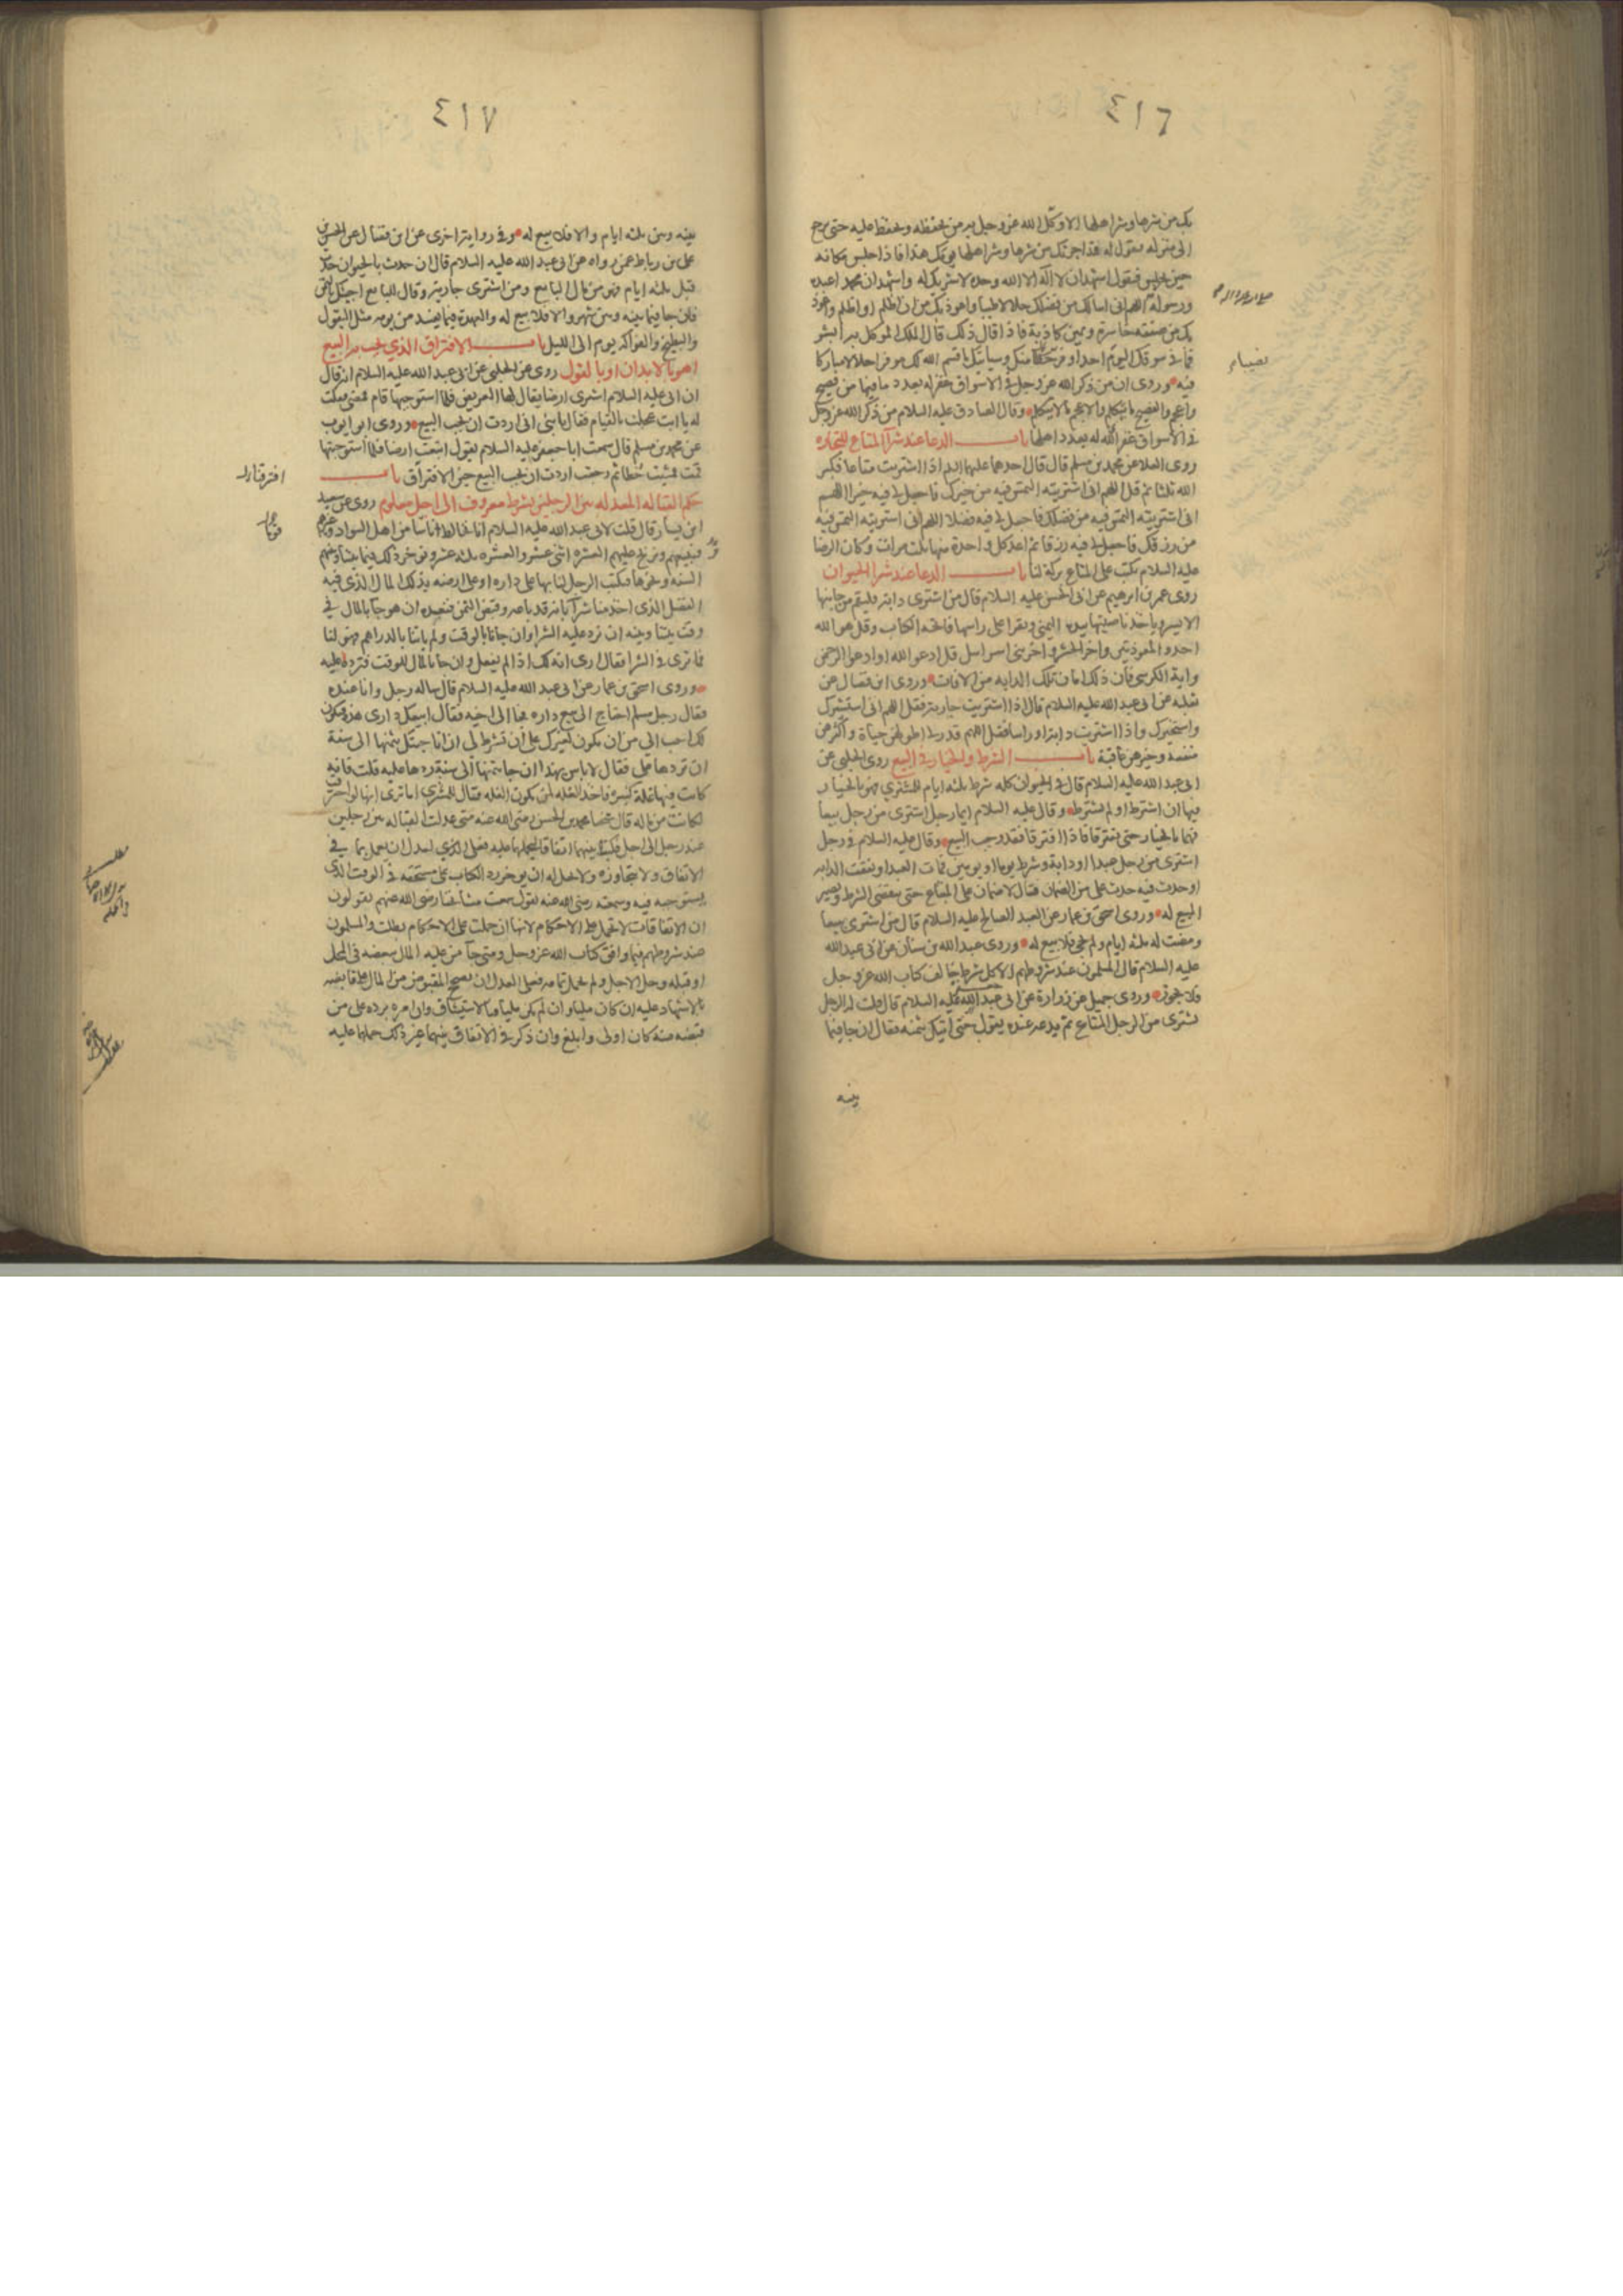 ٤١٦
بك من شرها وشر اهلها الا وكل الله عز وجل به من يحفظه ويحفظ عليه حتى يرجع
الى منزله فيقول له قد اجرتك من شرها وشر اهلها يومك هذا فاذا جلس مكانه
حين يجلس فيقول اشهد ان لا اله الا الله وحده لا شريك له واشهد ان محمدا عبده
ورسوله اللهم انى اسالك من فضلك حلالا طيبا واعوذ بك من ان اظلم او اظلم واعوذ
بك من صفقه خاسرة ويمين كاذبة فاذا قال ذلك قال الملك الموكل به ابشر
فما فى سوقك اليوم احد اوفر حظا منك وسياتيك ما قسم الله لك موفرا حلالا مباركا
فيه وروى ان من ذكر الله عز وجل فى الاسواق غفر له بعدد ما فيها من فصيح
واعجم والفصيح ما يتكلم والاعجم ما لا يتكلم وقال الصادق عليه السلام من ذكر الله عز وجل
فى الاسواق غفر الله له بعدد اهلها باب الدعا عند شرآ المتاع للتجاره
روى العلا عن محمد بن مسلم قال قال احدهما عليهما السلم اذا اشتريت متاعا فكبر
الله ثلثا ثم قل اللهم انى اشتريته التمس فيه من خيرك فاجعل لى فيه خيرا اللهم
انى اشتريته التمس فيه من فضلك فاجعل لى فيه فضلا اللهم انى اشتريته التمس فيه
من رزقك فاجعل لى فيه رزقا ثم اعد كل واحدة منها ثلث مرات وكان الرضا
عليه السلام يكتب على المتاع بركة لنا باب الدعا عند شرا الحيوان
روى عمر بن ابرهيم عن ابى الحسن عليه السلام قال من اشترى دابة فليقم من جانبها
الايسر وياخذ ناصيتها بيده اليمنى ويقرا على راسها فاتحه الكتاب وقل هو الله
احد والمعوذتين واخر الحشر واخر بنى اسرايل قل ادعوا الله او ادعوا الرحمن
واية الكرسى فان ذلك امان تلك الدابه من الافات وروى ابن فضال عن
ثعلبه عن ابى عبد الله عليه السلام قال اذا اشتريت جارية فقل اللهم انى استشيرك
واستخيرك واذا اشتريت دابة او راسا فقل اللهم قدر لى اطولهن حياة واكثرهن
منفعه وخيرهن عاقبة باب الشرط والخيار فى البيع روى الحلبى عن
ابى عبد الله عليه السلام قال فى الحيوان كله شرط ثلثه ايام للمشترى فهو بالخيار
فيها ان اشترط او لم يشترط وقال عليه السلام ايما رجل اشترى من رجل بيعا
فهما بالخيار حتى يفترقا فاذا افترقا فقد وجب البيع وقال عليه السلام فى رجل
اشترى من رجل عبدا او دابة وشرط يوما او يومين فمات العبد او نفقت الدابه
او حدث فيه حدث على من الضمان فقال لا ضمان على المبتاع حتى ينقضى الشرط ويصير
المبيع له وروى اسحق بن عمار عن العبد الصالح عليه السلام قال من اشترى بيعا
ومضت له ثلثه ايام ولم يجى فلا بيع له وروى عبد الله بن سنان عن ابى عبد الله
عليه السلام قال المسلمون عند شروطهم الا كل شرط خالف كتاب الله عز وجل
فلا يجوز وروى جميل عن زرارة عن ابى عبد الله عليه السلام قال قلت له الرجل
يشترى من الرجل المتاع ثم يدعه عنده يقول حتى آتيك بثمنه فقال ان جا فيما
بينه
٤١٧
بينه وبين ثلثه ايام والا فلا بيع له وفى رواية اخرى عن ابن فضال عن الحسن بن
على بن رباط عمن رواه عن ابى عبد الله عليه السلام قال ان حدث بالحيوان حدث
قبل ثلثه ايام فهو من مال البايع ومن اشترى جارية وقال للبايع اجيئك بالثمن
فان جا فيما بينه وبين شهر والا فلا بيع له والعهدة فيما يفسد من يومه مثل البقول
والبطيخ والفواكه يوم الى الليل باب الافتراق الذى يجب به البيع
اهو بالابدان او بالقول روى عن الحلبى عن ابى عبد الله عليه السلام انه قال
ان ابى عليه السلام اشترى ارضا يقال لها العريض فلما استوجبها قام فمضى فقلت
له يا ابت عجلت بالقيام فقال يا بنى انى اردت ان يجب البيع وروى ابو ايوب
عن محمد بن مسلم قال سمعت ابا جعفر عليه السلام يقول ابتعت ارضا فلما استوجبتها
قمت فمشيت خطا ثم رجعت اردت ان يجب البيع حين الافتراق باب
افترقنا
حكم القباله المعدله بين الرجلين بشرط معروف الى اجل معلوم روى عن سعيد
ابن يسار قال قلت لابى عبد الله عليه السلام انا نخالط اناسا من اهل السواد وغيرهم
فنبيعهم ونربح عليهم العشره اثنى عشر والعشره بثلثه عشر ونوخر ذلك فيما بيننا وبينهم
السنه ونحوها فيكتب الرجل لنا بها على داره او على ارضه بذلك المال الذى فيه
الفضل الذى اخذ منا شرآ بانه قد باعه وقبض الثمن فنعده ان هو جآ بالمال فى
وقت بيننا وبينه ان نرد عليه الشرا وان جانا الوقت ولم ياتنا بالدراهم فهو لنا
فما ترى فى الشرا فقال ارى انه لك اذا لم يفعل وان جا بالمال للوقت فترد عليه
وروى اسحق بن عمار عن ابى عبد الله عليه السلام قال ساله رجل وانا عنده
فقال رجل مسلم احتاج الى بيع داره فجا الى اخيه فقال ابيعك دارى هذه فتكون
لك احب الى من ان يكون لغيرك على ان تشترط لى ان انا جئتك بثمنها الى سنة
ان تردها على فقال لا باس بهذا ان جا بثمنها الى سنة ردها عليه قلت فانه
كانت فيها غلة كثيره فاخذ الغله لمن يكون الغله فقال للمشترى اما ترى انها لو احترقت
لكانت من ماله قال شيخنا محمد بن الحسن رضى الله عنه متى عدلت القباله بين رجلين
عند رجل الى اجل فكتبا بينهما اتفاقا ليحملهما عليه فعلى العدل ان يعمل بما فى
الاتفاق ولا يتجاوزه ولا يحل له ان يوخر رد الكتاب على مستحقه فى الوقت الذى
يستوجبه فيه وسمعته رضى الله عنه يقول سمعت مشايخنا رضى الله عنهم يقولون
ان الاتفاقات لا تحمل على الاحكام لانها ان حملت على الاحكام بطلت والمسلمون
عند شروطهم فيما وافق كتاب الله عز وجل ومتى جآ من عليه المال ببعضه فى المحل
او قبله وحل الاجل ولم يحمل تمامه فعلى العدل ان يصحح المقبوض من المال على قابضه
بالاشهاد عليه ان كان مليا وان لم يكن مليا فبالاستيثاق وان امره برده على من
قبضه منه كان اولى وابلغ وان ذكر فى الاتفاق بينهما غير ذلك حملهما عليه